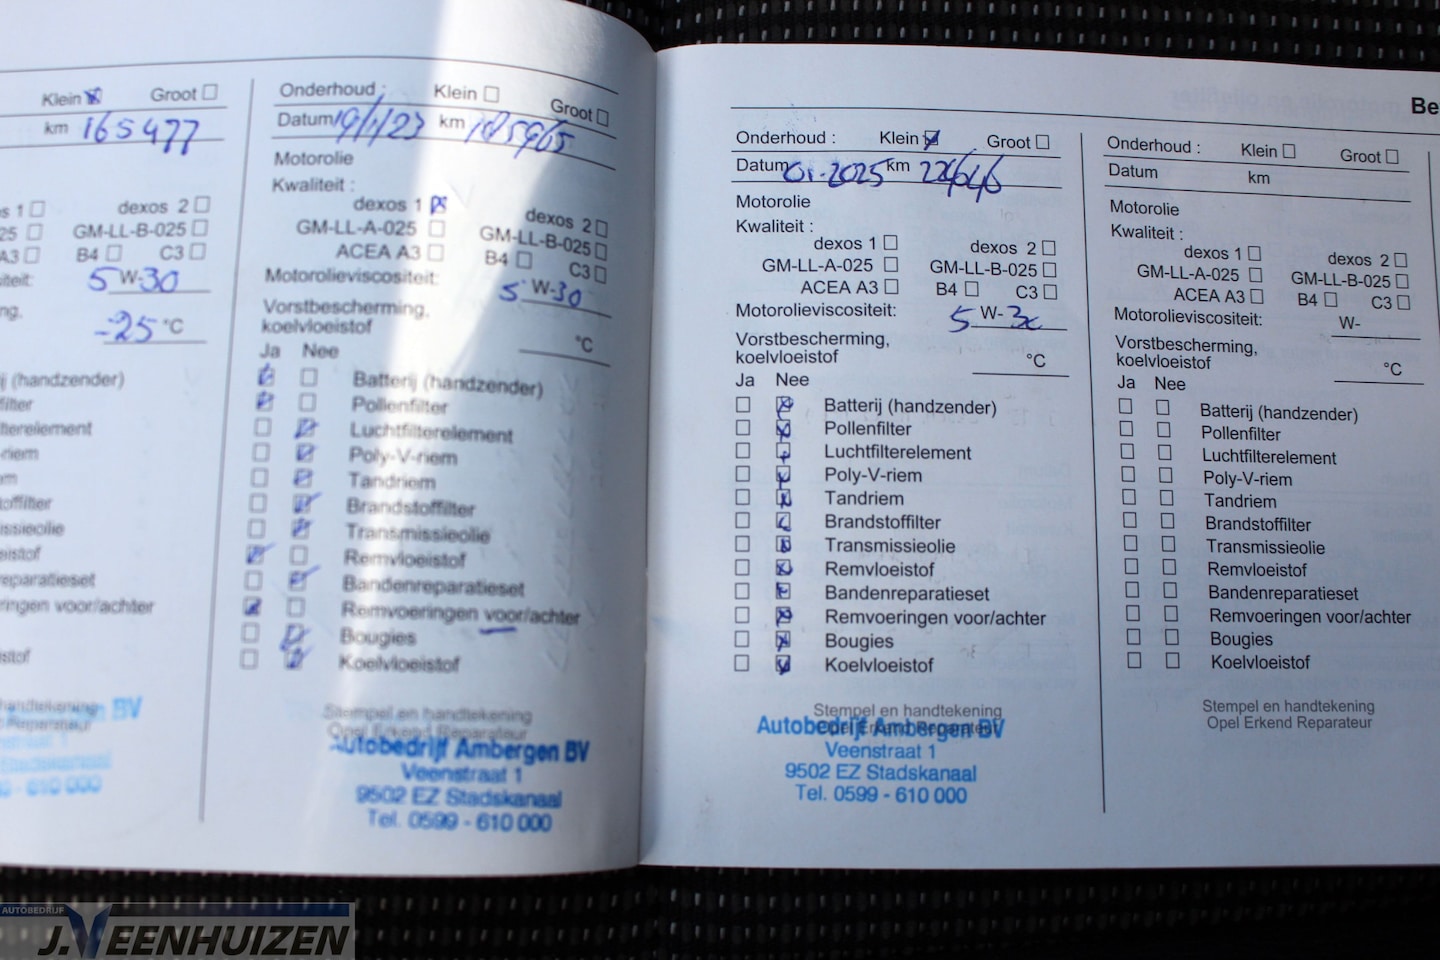 Klein Groot
km 165477
s 1 dexos 2
25 GM-LL-B-025
A3 B4 C3
siteit: 5 W-30
ng, -25 °C
ij (handzender)
filter
lterelement
-riem
m
offilter
issieolie
eistof
eparatieset
ringen voor/achter
stof
handtekening
Reparateur
en BV
- 610 000
Onderhoud : Klein Groot
Datum 19/1/23 km
Motorolie
Kwaliteit :
dexos 1 dexos 2
GM-LL-A-025 GM-LL-B-025
ACEA A3 B4 C3
Motorolieviscositeit: 5 W-30
Vorstbescherming,
koelvloeistof °C
Ja Nee
Batterij (handzender)
Pollenfilter
Luchtfilterelement
Poly-V-riem
Tandriem
Brandstoffilter
Transmissieolie
Remvloeistof
Bandenreparatieset
Remvoeringen voor/achter
Bougies
Koelvloeistof
Stempel en handtekening
Opel Erkend Reparateur
Autobedrijf Ambergen BV
Veenstraat 1
9502 EZ Stadskanaal
Tel. 0599 - 610 000
Be
Onderhoud : Klein Groot
Datum 01-2025 km
Motorolie
Kwaliteit :
dexos 1 dexos 2
GM-LL-A-025 GM-LL-B-025
ACEA A3 B4 C3
Motorolieviscositeit: 5 W-30
Vorstbescherming,
koelvloeistof °C
Ja Nee
Batterij (handzender)
Pollenfilter
Luchtfilterelement
Poly-V-riem
Tandriem
Brandstoffilter
Transmissieolie
Remvloeistof
Bandenreparatieset
Remvoeringen voor/achter
Bougies
Koelvloeistof
Stempel en handtekening
Opel Erkend Reparateur
Autobedrijf Ambergen BV
Veenstraat 1
9502 EZ Stadskanaal
Tel. 0599 - 610 000
Onderhoud : Klein Groot
Datum km
Motorolie
Kwaliteit :
dexos 1 dexos 2
GM-LL-A-025 GM-LL-B-025
ACEA A3 B4 C3
Motorolieviscositeit: W-
Vorstbescherming,
koelvloeistof °C
Ja Nee
Batterij (handzender)
Pollenfilter
Luchtfilterelement
Poly-V-riem
Tandriem
Brandstoffilter
Transmissieolie
Remvloeistof
Bandenreparatieset
Remvoeringen voor/achter
Bougies
Koelvloeistof
Stempel en handtekening
Opel Erkend Reparateur
AUTOBEDRIJF
J.VEENHUIZEN